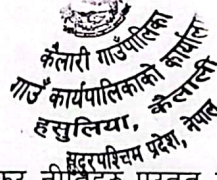 कैलारी गाउँपालिका
गाउँ कार्यपालिकाको कार्यालय
हसुलिया, कैलाली
सुदूरपश्चिम प्रदेश, नेपाल